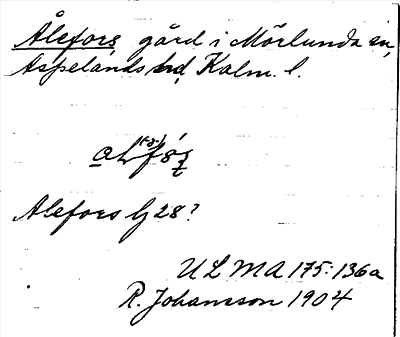 Ålefors gård i Mörlunda sn,
Aspelands hd, Kalm. l.
Alefors Lj 28?
ULMA 175:136a
R. Johansson 1904